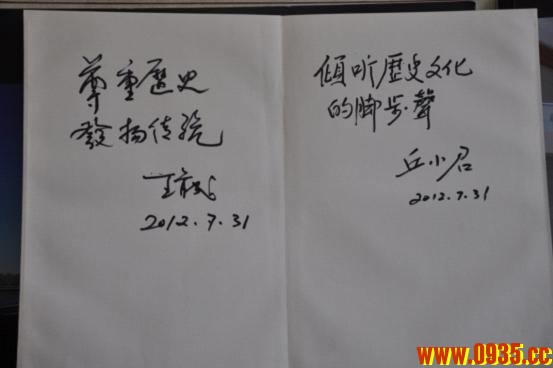 尊重歷史
發扬传统
2012.7.31
傾听歷史文化
的脚步聲
丘小君
2012.7.31
www.0935.cc